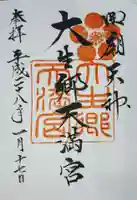 御朝天神
大生郷天満宮
奉拝
平成二十八年一月十七日